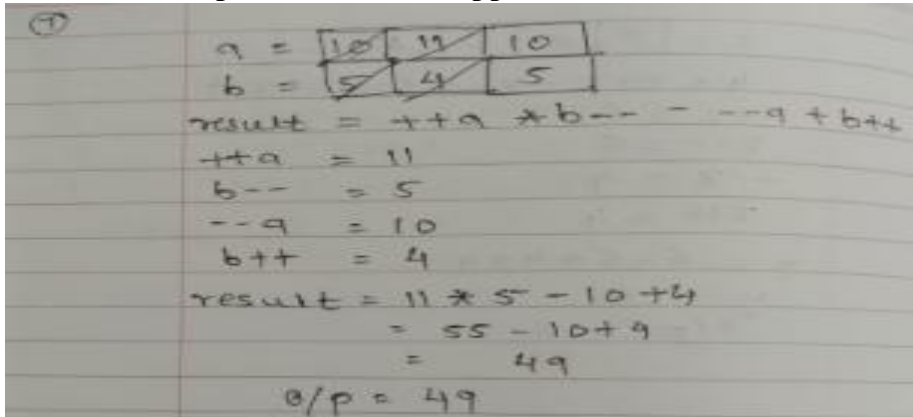 ①
a = 10 11 10
b = 5 4 5
result = ++a * b-- - --a + b++
++a = 11
b-- = 5
--a = 10
b++ = 4
result = 11 * 5 - 10 + 4
= 55 - 10 + 4
= 49
O/p = 49